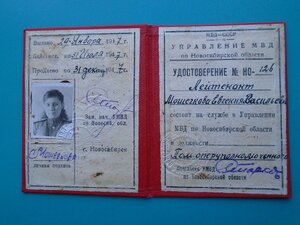 Выдано 29 января 1947 г.
Действит. по 31 июля 1947 г.
Продлено по 31 декаб. 1947 г.
Зам. нач. УМВД
по Новосиб. обл.
г. Новосибирск
личная подпись
МВД—СССР
УПРАВЛЕНИЕ МВД
по Новосибирской области
УДОСТОВЕРЕНИЕ № НО-126
Лейтенант
Евгения Васильевна
состоит на службе в Управлении
МВД по Новосибирской области
в должности
Пом. оперуполномоченного
Начальник УМВД
по Новосибирской области